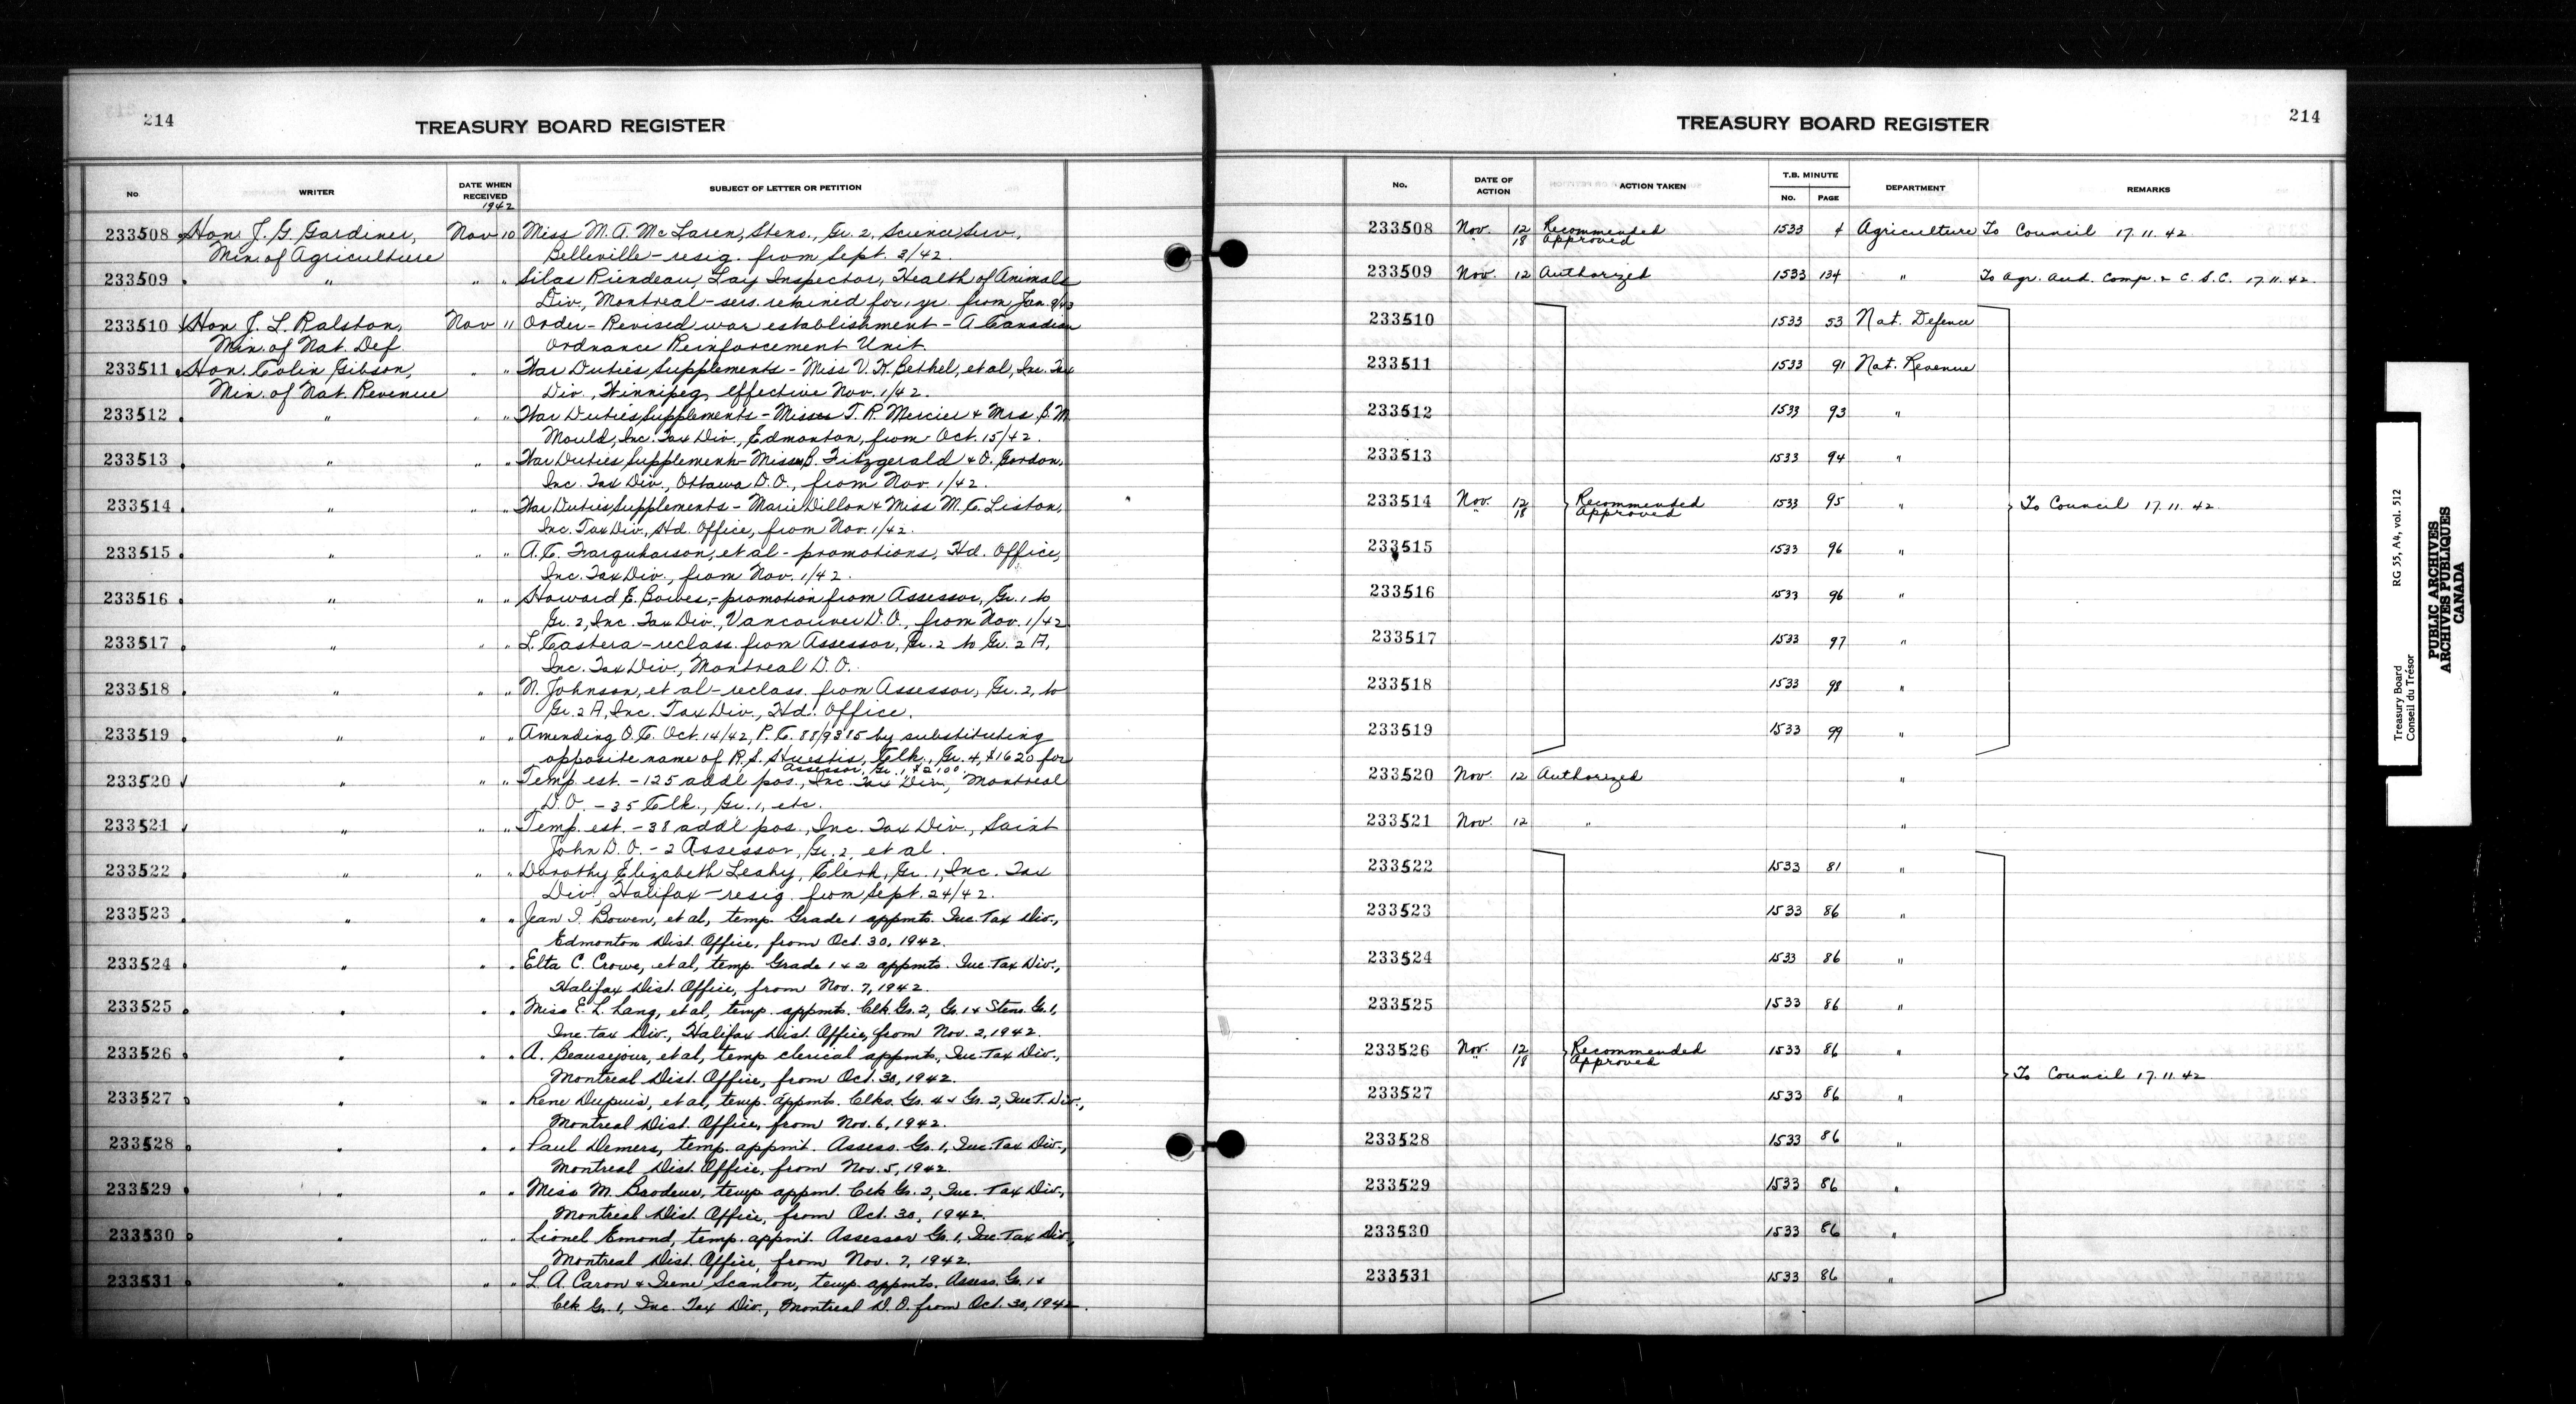 214
TREASURY BOARD REGISTER
No. WRITER DATE WHEN RECEIVED SUBJECT OF LETTER OR PETITION
1942
233508 Hon. J. G. Gardiner, Nov 10 Miss M. A. McLaren, Steno., Gr. 2, Science Serv.,
Min. of Agriculture Belleville - resig. from Sept. 3/42.
233509 " " " Silas Riendeau, Lay Inspector, Health of Animals
Div., Montreal - sers. retained for 1 yr. from Jan. 9/43
233510 Hon. J. L. Ralston, Nov 11 Order - Revised war establishment - A Canadian
Min. of Nat. Def. Ordnance Reinforcement Unit
233511 Hon. Colin Gibson, " " War Duties Supplements - Miss V. K. Bethel, et al, Inc. Tax
Min. of Nat. Revenue Div., Winnipeg, effective Nov. 1/42.
233512 " " " War Duties Supplements - Misses T. R. Mercier & Mrs. B. M.
Mould, Inc. Tax Div., Edmonton, from Oct. 15/42.
233513 " " " War Duties Supplement - Misses B. Fitzgerald & O. Gordon,
Inc. Tax Div., Ottawa D.O., from Nov. 1/42.
233514 " " " War Duties Supplements - Marie Dillon & Miss M. C. Liston,
Inc. Tax Div., Hd. Office, from Nov. 1/42.
233515 " " " A. C. Farquharson, et al - promotions, Hd. Office,
Inc. Tax Div., from Nov. 1/42.
233516 " " " Howard E. Bowes, - promotion from Assessor, Gr. 1 to
Gr. 2, Inc. Tax Div., Vancouver D.O., from Nov. 1/42
233517 " " " L. Castera - reclass. from Assessor, Gr. 2 to Gr. 2 A,
Inc. Tax Div., Montreal D.O.
233518 " " " N. Johnson, et al - reclass. from Assessor, Gr. 2, to
Gr. 2 A, Inc. Tax Div., Hd. Office.
233519 " " " Amending O.C. Oct. 14/42, P.C. 88/9385 by substituting
opposite name of R. S. Huestis, Clk., Gr. 4, $1620 for
Assessor, Gr. 1, $2100.
233520 " " " Temp. est. - 125 addl pos., Inc. Tax Div., Montreal
D.O. - 35 Clk., Gr. 1, etc.
233521 " " " Temp. est. - 38 addl pos., Inc. Tax Div., Saint
John D.O. - 2 Assessor, Gr. 2, et al.
233522 " " " Dorothy Elizabeth Leahy, Clerk, Gr. 1, Inc. Tax
Div., Halifax - resig. from Sept. 24/42.
233523 " " " Jean I. Bowen, et al, temp. Grade 1 appmts. Inc. Tax Div.,
Edmonton Dist. Office, from Oct. 30, 1942.
233524 " " " Elta C. Crowe, et al, temp. Grade 1 & 2 appmts. Inc. Tax Div.,
Halifax Dist. Office, from Nov. 7, 1942.
233525 " " " Miss E. L. Lang, et al, temp. appmts. Clk. Gr. 2, Gr. 1 & Steno. Gr. 1,
Inc. tax Div., Halifax Dist. Office, from Nov. 2, 1942.
233526 " " " A. Beausejour, et al, temp clerical appmts., Inc. Tax Div.,
Montreal Dist. Office, from Oct. 30, 1942.
233527 " " " Rene Dupuis, et al, temp. appmts. Clks. Gr. 4 & Gr. 2, Inc. T. Div.,
Montreal Dist. Office, from Nov. 6, 1942.
233528 " " " Paul Demers, temp. appmt. Assess. Gr. 1, Inc. Tax Div.,
Montreal Dist. Office, from Nov. 5, 1942.
233529 " " " Miss M. Brodeur, temp appmt. Clk Gr. 2, Inc. Tax Div.,
Montreal Dist. Office, from Oct. 30, 1942.
233530 " " " Lionel Emond, temp. appmt. Assessor Gr. 1, Inc. Tax Div.,
Montreal Dist. Office, from Nov. 7, 1942.
233531 " " " L. A. Caron & Irene Scanlon, temp. appmts. Assess. Gr. 1 &
Clk Gr. 1, Inc. Tax Div., Montreal D.O. from Oct. 30, 1942.
TREASURY BOARD REGISTER
214
No. DATE OF ACTION ACTION TAKEN T.B. MINUTE NO. PAGE DEPARTMENT REMARKS
233508 Nov. 12 Recommended 1533 4 Agriculture To Council 17.11.42
" 18 Approved
233509 Nov. 12 Authorized 1533 134 " To Agr. Aud. Comp. & C.S.C. 17.11.42
233510 1533 53 Nat. Defence
233511 1533 91 Nat. Revenue
233512 1533 93 "
233513 1533 94 "
233514 Nov. 12 Recommended 1533 95 " To Council 17.11.42
" 18 Approved
233515 1533 96 "
233516 1533 96 "
233517 1533 97 "
233518 1533 98 "
233519 1533 99 "
233520 Nov. 12 Authorized "
233521 Nov. 12 " "
233522 1533 81 "
233523 1533 86 "
233524 1533 86 "
233525 1533 86 "
233526 Nov. 12 Recommended 1533 86 "
" 18 Approved
To Council 17.11.42
233527 1533 86 "
233528 1533 86 "
233529 1533 86 "
233530 1533 86 "
233531 1533 86 "
Treasury Board RG 55, A4, vol. 512
Conseil du Trésor
PUBLIC ARCHIVES
ARCHIVES PUBLIQUES
CANADA